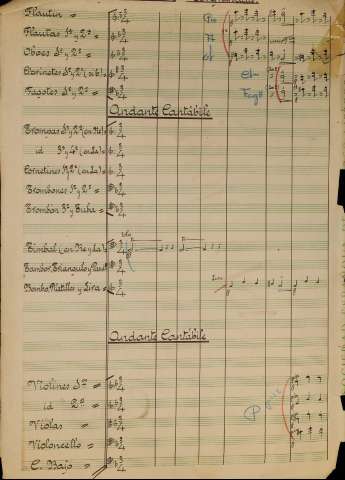 Flautin =
Flautas 1ª y 2ª =
Oboes 1º y 2º =
Clarinetes 1º y 2º (si b)
Fagotes 1º y 2º =
Andante Cantábile
Trompas 1ª y 2ª (en Re)
id 3ª y 4ª (en La)
Cornetines 1º y 2º (en La)
Trombones 1º y 2º =
Trombón 3º y Tuba =
Timbal (en Re y La)
Solo
Tambor, Triangulo y
Bombo, Platillos y Lira =
Andante Cantábile
Violines 1º =
id 2º =
Violas =
Violoncello =
C. Bajo =